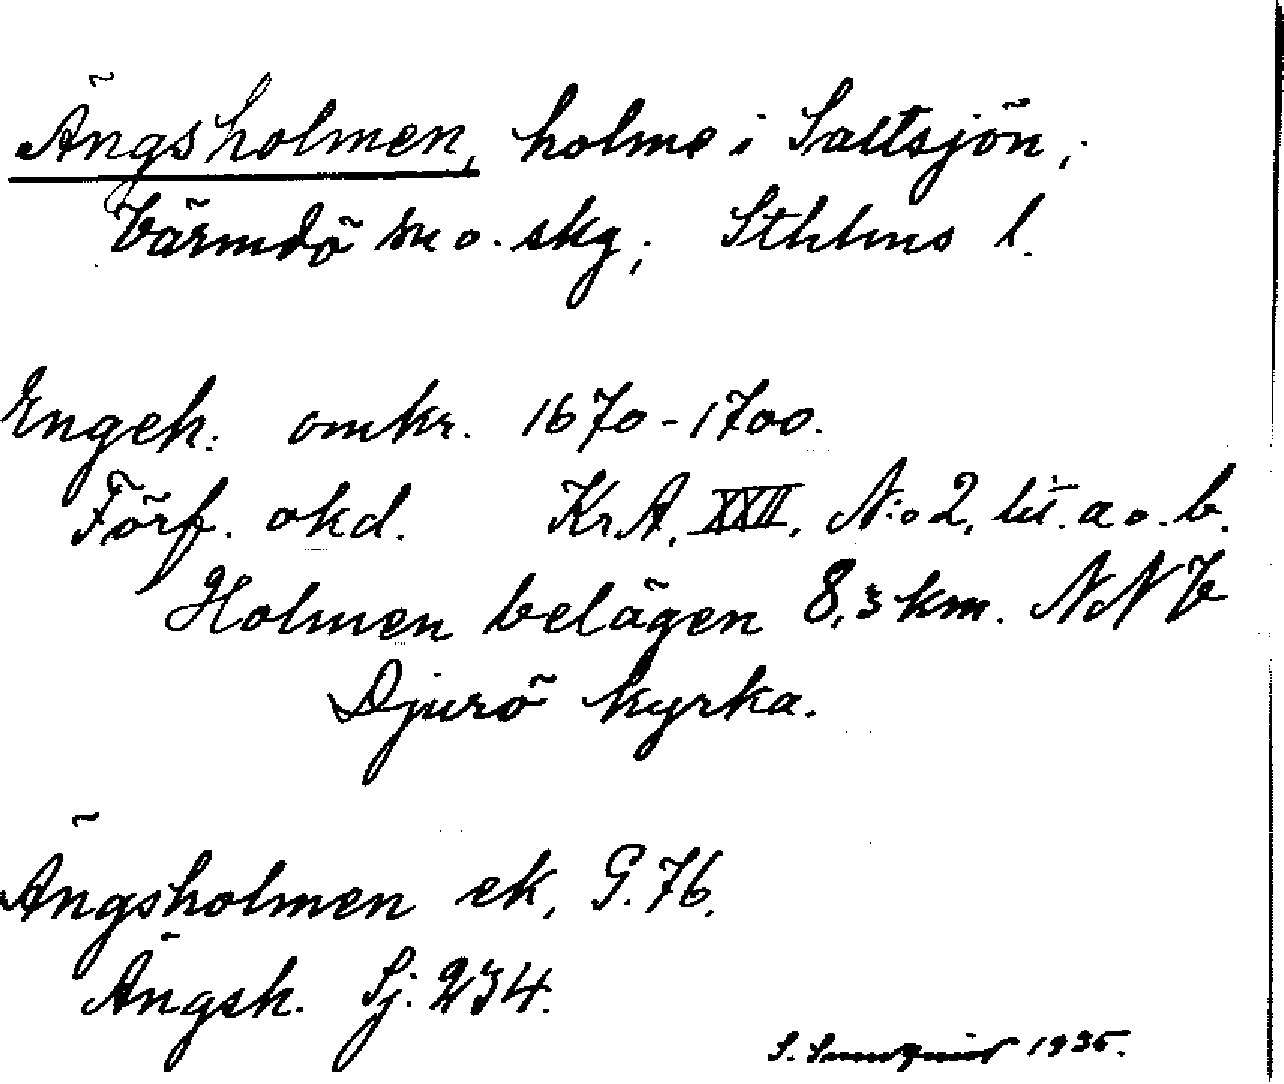 Ängsholmen, holme i Saltsjön,
Värmdö sn o. skg, Sthlms l.
Engeh: omkr. 1670-1700.
Förf. okd. Kr.A. XXII, N:o 2, litt. a o. b.
Holmen belägen 8,3 km. NNV
Djurö kyrka.
Ängsholmen ek. G. 76.
Ängsh. Sj. 234.
S. Sundquist 1935.